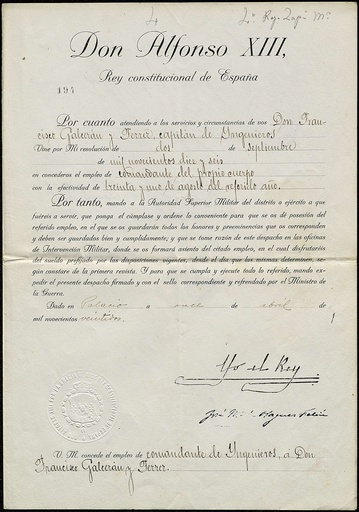 4
Don Alfonso XIII,
Rey constitucional de España
Por cuanto atendiendo a los servicios y circunstancias de vos Don Fran-
cisco Galcerán y Ferrer, capitán de Yngenieros
Vine por Mi resolución de dos de septiembre
de mil novecientos diez y seis
en concederos el empleo de comandante del propio cuerpo
con la efectividad de treinta y uno de agosto del referido año.
Por tanto, mando a la Autoridad Superior Militar del distrito o ejército a que
fuéreis a servir, que ponga el cúmplase y ordene lo conveniente para que se os dé posesión del
referido empleo, en el que se os guardarán todos los honores y preeminencias que os corresponden
y deben ser guardados bien y cumplidamente; y que se tome razón de este despacho en las oficinas
de Intervención Militar, donde se os formará asiento del citado empleo, en el cual disfrutaréis
del sueldo prefijado por las disposiciones vigentes, desde el día que las mismas determinen, se-
gún constare de la primera revista. Y para que se cumpla y ejecute todo lo referido, mando ex-
pedir el presente despacho firmado y con el sello correspondiente y refrendado por el Ministro de
la Guerra.
Dado en Palacio a once de abril de
mil novecientos veintidos.
Yo el Rey
José M.ª
V. M. concede el empleo de comandante de Yngenieros, á Don
Francisco Galcerán y Ferrer.